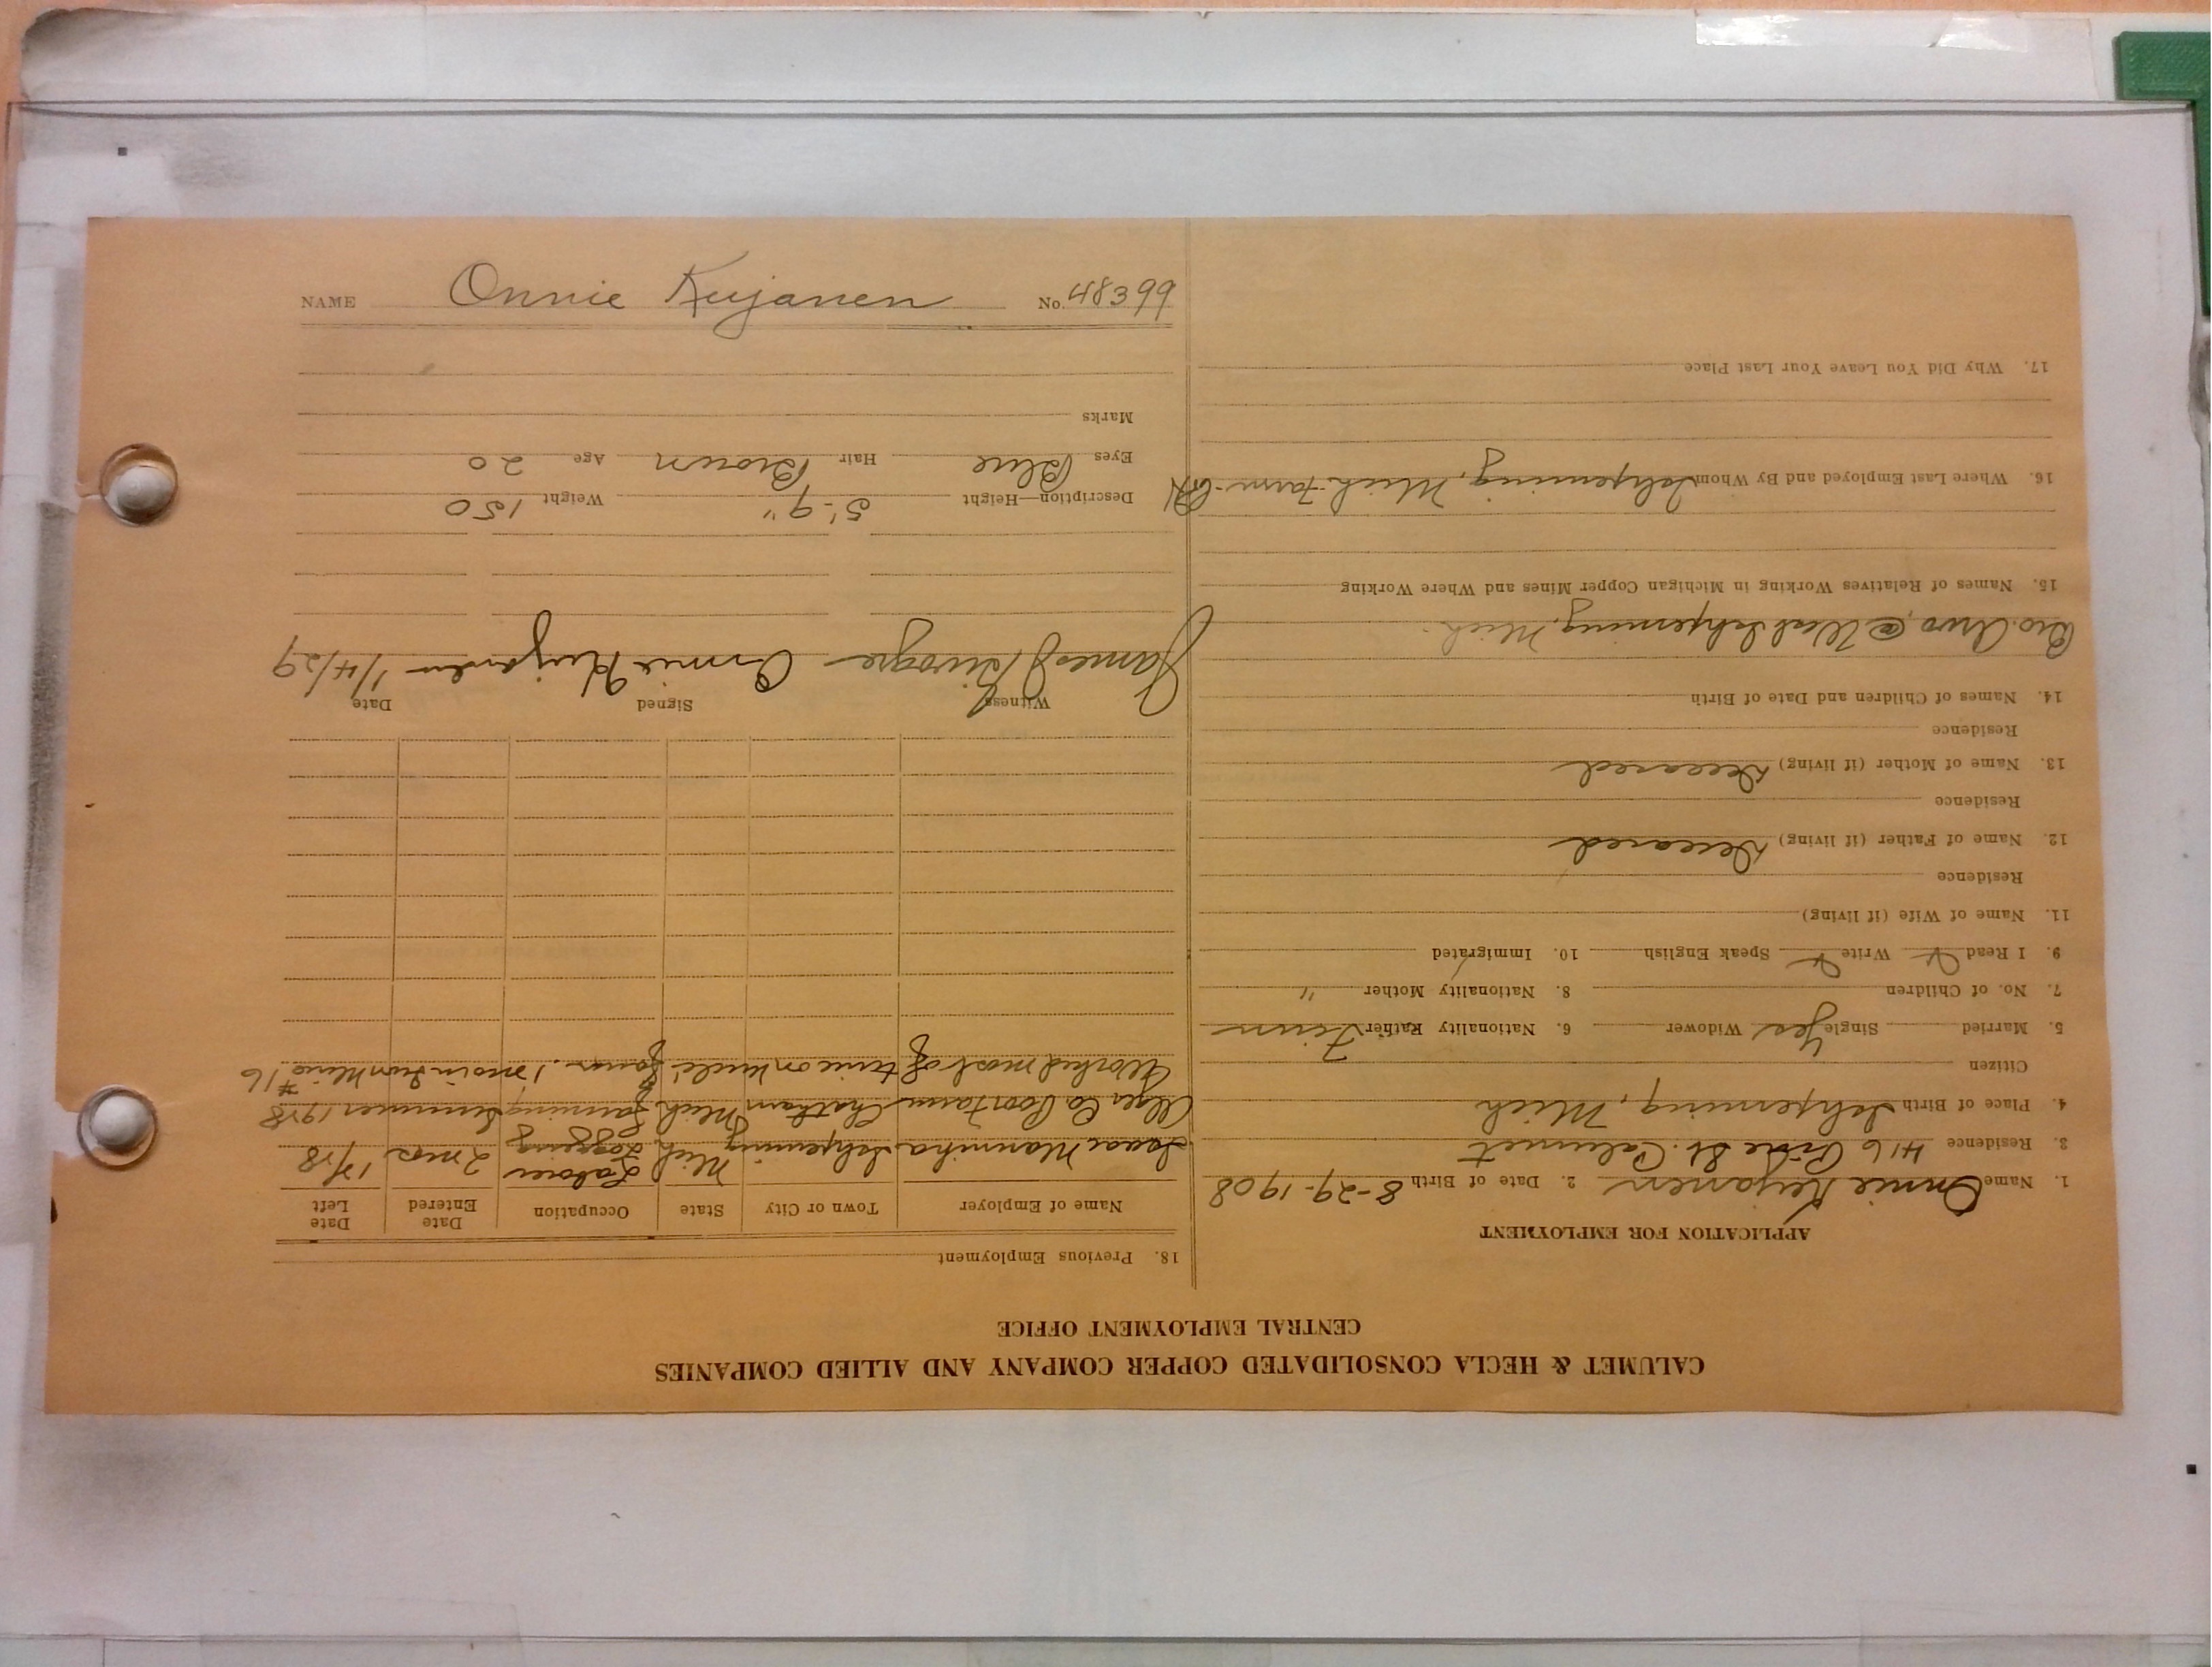 NAME Onnie Kujanen No. 48399
CALUMET & HECLA CONSOLIDATED COPPER COMPANY AND ALLIED COMPANIES
CENTRAL EMPLOYMENT OFFICE
APPLICATION FOR EMPLOYMENT
1. Name Onnie Kujanen 2. Date of Birth 8-29-1908
3. Residence 416 Pine St. Calumet
4. Place of Birth Ishpeming, Mich
Citizen
5. Married Single Yes Widower 6. Nationality Father Finn
7. No. of Children 8. Nationality Mother "
9. I Read Write Speak English 10. Immigrated
11. Name of Wife (if living)
Residence
12. Name of Father (if living) Deceased
Residence
13. Name of Mother (if living) Deceased
Residence
14. Names of Children and Date of Birth
Bro. Arvo, @ West Ishpeming, Mich.
15. Names of Relatives Working in Michigan Copper Mines and Where Working
16. Where Last Employed and By Whom Ishpeming, Mich Farm
17. Why Did You Leave Your Last Place
18. Previous Employment
Name of Employer Town or City State Occupation Date Entered Date Left
Isaac Mannika Ishpeming Mich Laborer Logging 2 mos
Alger Co. Poor Farm Chatham Mich farming Summer 1928
Worked most of time on Uncle's farm. 1 mo in Iron Mine #16
Witness Signed Date
James Onnie Kujanen 1/4/29
Description—Height 5'-9" Weight 150
Eyes Blue Hair Brown Age 20
Marks